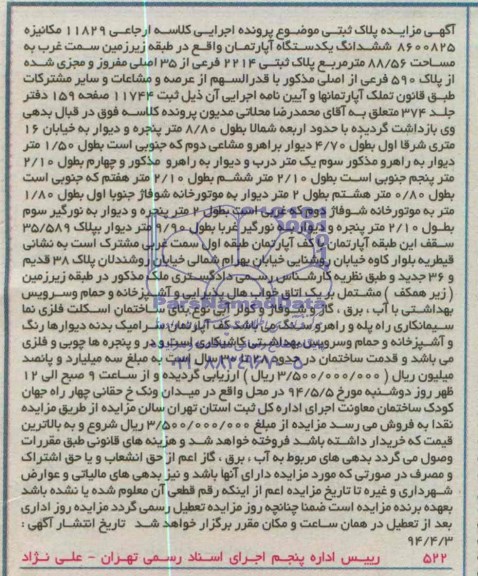 آگهی مزایده پلاک ثبتی موضوع پرونده اجرایی کلاسه ارجاعی ۱۱۸۲۹ مکانیزه
۸۶۰۰۸۲۵ ششدانگ یکدستگاه آپارتمان واقع در طبقه زیرزمین سمت غرب به
مساحت ۸۸/۵۶ مترمربع پلاک ثبتی ۲۲۱۴ فرعی از ۳۵ اصلی مفروز و مجزی شده
از پلاک ۵۹۰ فرعی از اصلی مذکور با قدرالسهم از عرصه و مشاعات و سایر مشترکات
طبق قانون تملک آپارتمانها و آیین نامه اجرایی آن ذیل ثبت ۱۱۷۴۴ صفحه ۱۵۹ دفتر
جلد ۳۷۴ متعلق به آقای محمدرضا محلاتی مدیون پرونده کلاسه فوق در قبال بدهی
وی بازداشت گردیده با حدود اربعه شمالا بطول ۸/۸۰ متر پنجره و دیوار به خیابان ۱۶
متری شرقا اول بطول ۴/۷۰ دیوار براهرو مشاعی دوم که جنوبی است بطول ۱/۵۰ متر
دیوار به راهرو مذکور سوم یک متر درب و دیوار به راهرو مذکور و چهارم بطول ۲/۱۰
متر پنجم جنوبی است بطول ۲/۱۰ متر ششم بطول ۲/۱۰ متر هفتم که جنوبی است
بطول ۰/۸۰ متر هشتم بطول ۲ متر دیوار به موتورخانه شوفاژ جنوبا اول بطول ۱/۸۰
متر به موتورخانه شوفاژ دوم که غربی است بطول ۲ متر پنجره و دیوار به نورگیر سوم
بطول ۲/۱۰ متر پنجره و دیوار به نورگیر غربا بطول ۹/۹۰ متر دیوار بپلاک ۳۵/۵۸۹
سقف این طبقه آپارتمان با کف آپارتمان طبقه اول سمت غربی مشترک است به نشانی
قیطریه بلوار کاوه خیابان روشنایی خیابان بهرام شمالی خیابان روشندلان پلاک ۳۸ قدیم
و ۳۶ جدید و طبق نظریه کارشناس رسمی دادگستری ملک مذکور در طبقه زیرزمین
( زیر همکف ) مشتمل بر یک اتاق خواب هال پذیرایی و آشپزخانه و حمام وسرویس
بهداشتی با آب ، برق ، گاز و شوفاژ و کولر آبی نوع بنای ساختمان اسکلت فلزی نما
سیمانکاری راه پله و راهرو سنگ می باشد کف آپارتمان سرامیک بدنه دیوارها رنگ
و آشپزخانه و حمام وسرویس بهداشتی کاشیکاری است و در و پنجره ها چوبی و فلزی
می باشد و قدمت ساختمان در حدود ۲۸ تا ۳۰ سال است به مبلغ سه میلیارد و پانصد
میلیون ریال ( ۳/۵۰۰/۰۰۰/۰۰۰ ریال ) ارزیابی گردیده و از ساعت ۹ صبح الی ۱۲
ظهر روز دوشنبه مورخ ۹۴/۵/۵ در محل واقع در میدان ونک خ حقانی چهار راه جهان
کودک ساختمان معاونت اجرای اداره کل ثبت استان تهران سالن مزایده از طریق مزایده
نقدا به فروش می رسد مزایده از مبلغ ۳/۵۰۰/۰۰۰/۰۰۰ ریال شروع و به بالاترین
قیمت که خریدار داشته باشد فروخته خواهد شد و هزینه های قانونی طبق مقررات
وصول می گردد بدهی های مربوط به آب ، برق ، گاز اعم از حق انشعاب و یا حق اشتراک
و مصرف در صورتی که مورد مزایده دارای آنها باشد و نیز بدهی های مالیاتی و عوارض
شهرداری و غیره تا تاریخ مزایده اعم از اینکه رقم قطعی آن معلوم شده یا نشده باشد
بعهده برنده مزایده است ضمنا چنانچه روز مزایده تعطیل رسمی گردد مزایده روز اداری
بعد از تعطیل در همان ساعت و مکان مقرر برگزار خواهد شد تاریخ انتشار آگهی :
۹۴/۴/۳
۵۲۲ رییس اداره پنجم اجرای اسناد رسمی تهران - علی نژاد